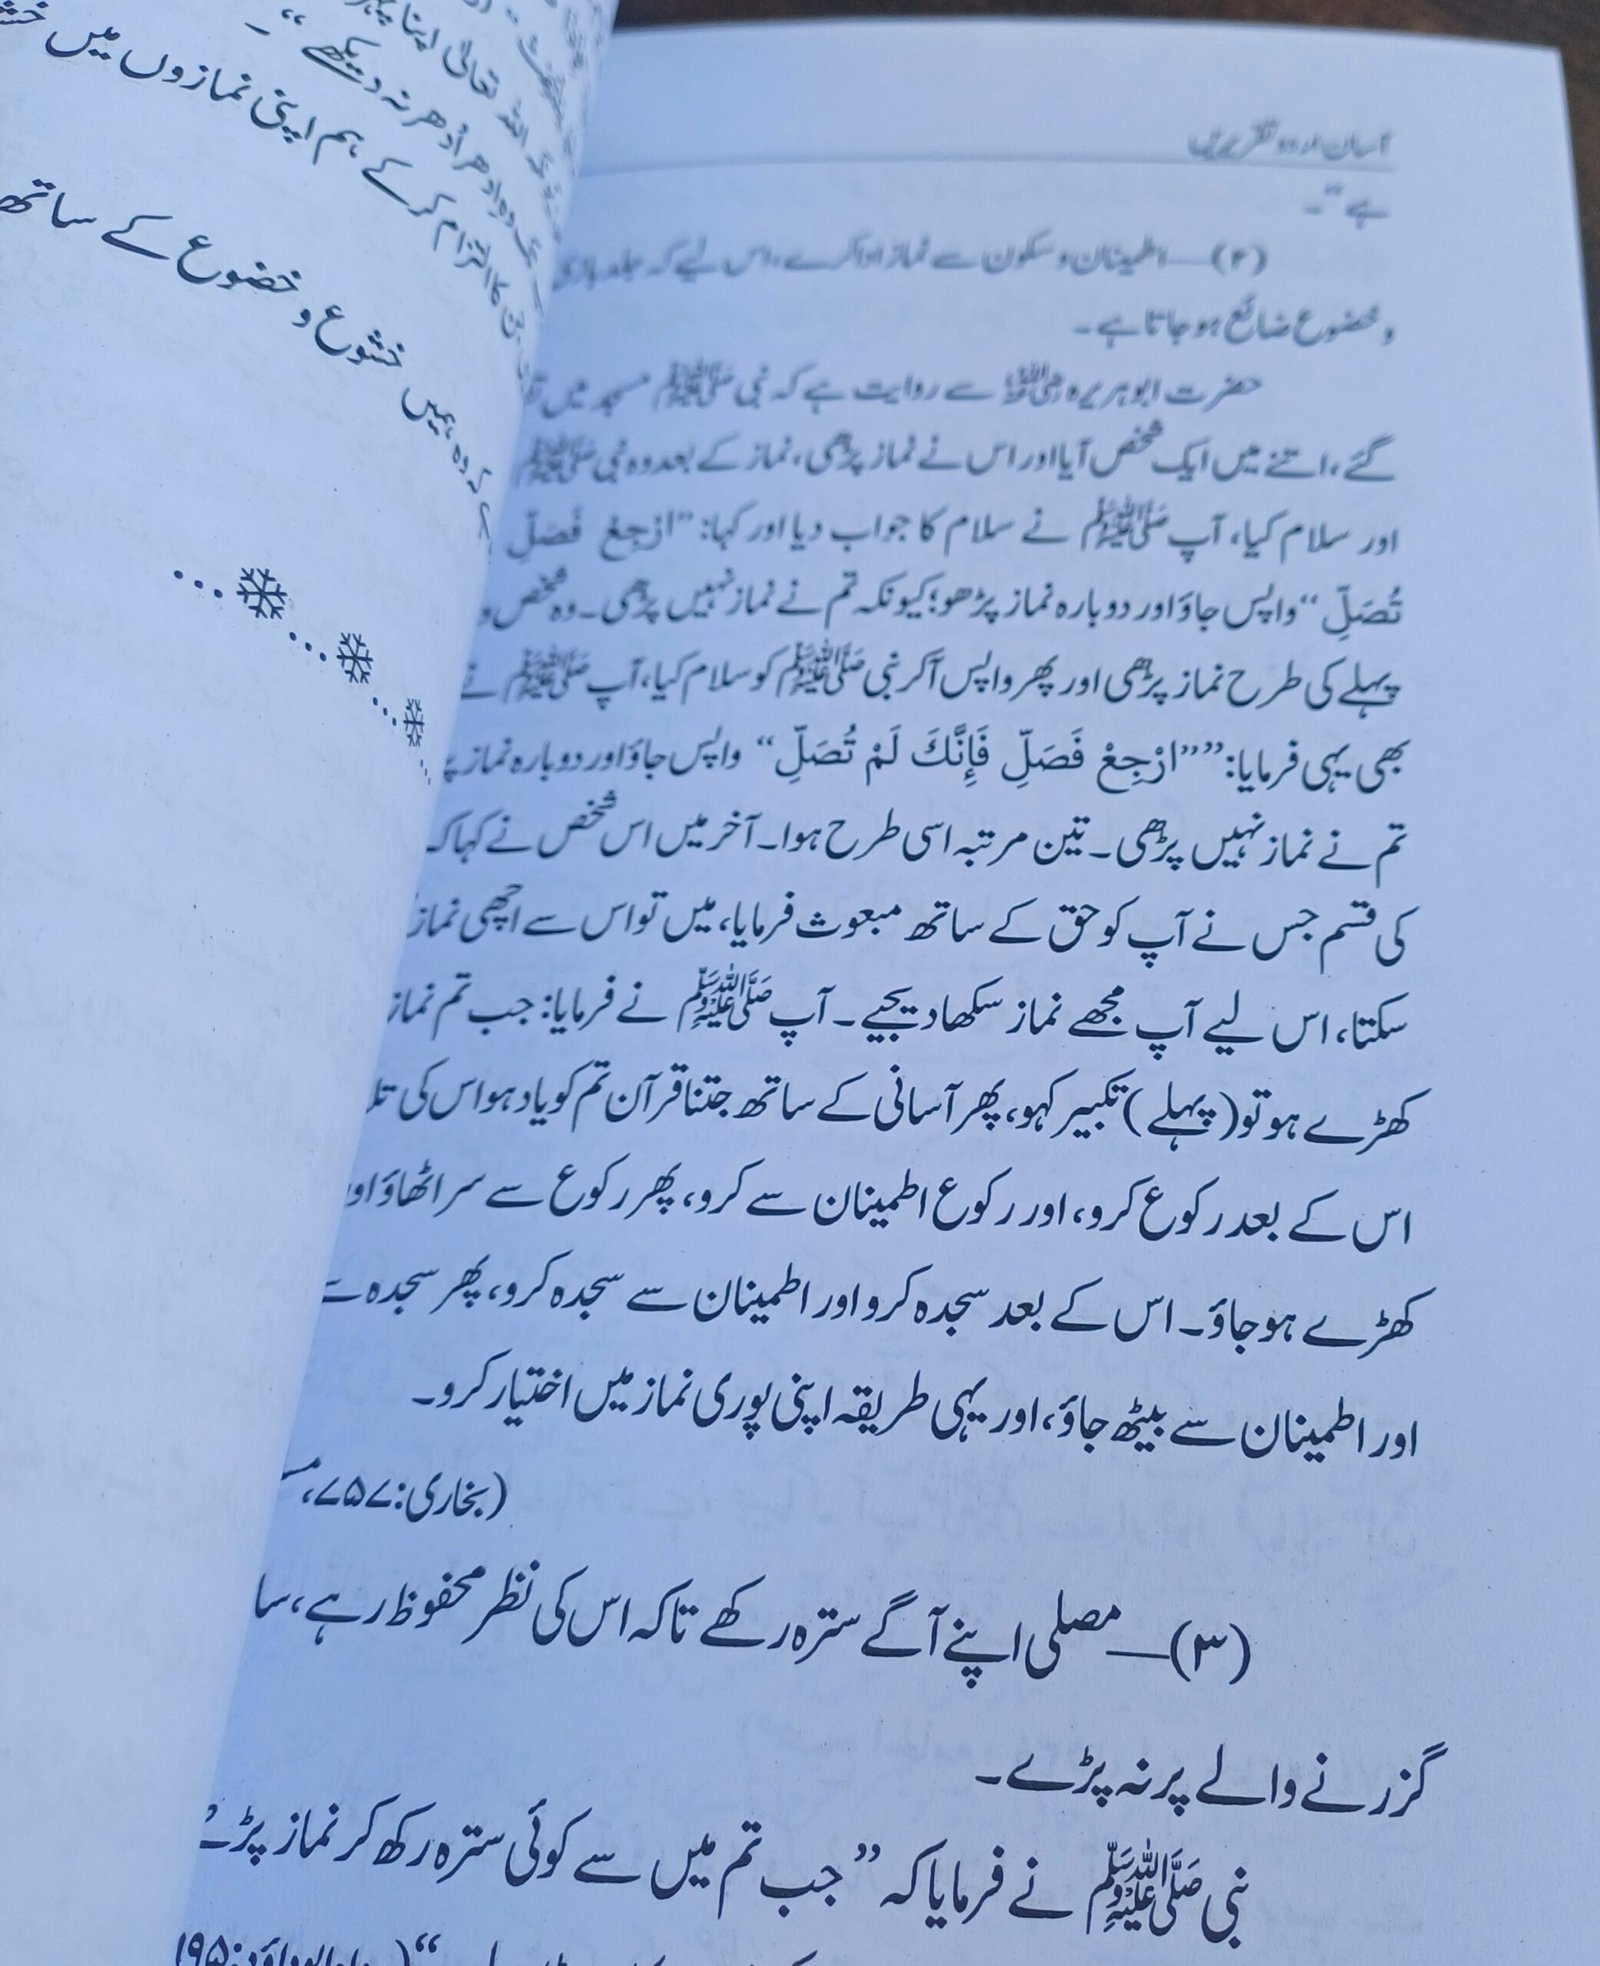 آسان اردو تقریریں
ہے“۔
(۲)— اطمینان و سکون سے نماز ادا کرے، اس لیے کہ جلد بازی
و خضوع ضائع ہو جاتا ہے۔
حضرت ابو ہریرہ رضی اللہ عنہ سے روایت ہے کہ نبی ﷺ مسجد میں
گئے، اتنے میں ایک شخص آیا اور اس نے نماز پڑھی، نماز کے بعد وہ نبی ﷺ
اور سلام کیا، آپ ﷺ نے سلام کا جواب دیا اور کہا: ”ارْجِعْ فَصَلِّ
تُصَلِّ“ واپس جاؤ اور دوبارہ نماز پڑھو؛ کیونکہ تم نے نماز نہیں پڑھی۔ وہ شخص و
پہلے کی طرح نماز پڑھی اور پھر واپس آکر نبی ﷺ کو سلام کیا، آپ ﷺ نے
بھی یہی فرمایا: ””ارْجِعْ فَصَلِّ فَإِنَّكَ لَمْ تُصَلِّ“ واپس جاؤ اور دوبارہ نماز پڑ
تم نے نماز نہیں پڑھی۔ تین مرتبہ اسی طرح ہوا۔ آخر میں اس شخص نے کہا کہ
کی قسم جس نے آپ کو حق کے ساتھ مبعوث فرمایا، میں تو اس سے اچھی نماز
سکتا، اس لیے آپ مجھے نماز سکھا دیجیے۔ آپ ﷺ نے فرمایا: جب تم نماز
کھڑے ہو تو (پہلے) تکبیر کہو، پھر آسانی کے ساتھ جتنا قرآن تم کو یاد ہو اس کی تلا
اس کے بعد رکوع کرو، اور رکوع اطمینان سے کرو، پھر رکوع سے سر اٹھاؤ اور
کھڑے ہو جاؤ۔ اس کے بعد سجدہ کرو اور اطمینان سے سجدہ کرو، پھر سجدہ سے
اور اطمینان سے بیٹھ جاؤ، اور یہی طریقہ اپنی پوری نماز میں اختیار کرو۔
(بخاری: ۷۵۷، مس
(۳)— مصلی اپنے آگے سترہ رکھے تاکہ اس کی نظر محفوظ رہے، سا
گزرنے والے پر نہ پڑے۔
نبی ﷺ نے فرمایا کہ ”جب تم میں سے کوئی سترہ رکھ کر نماز پڑھے
ابوداؤد: ۶۹۵
اللہ تعالیٰ اپنا
وہ ادھر اُدھر نہ دیکھے“۔
کا التزام کر کے ہم اپنی نمازوں میں
کہ وہ ہمیں خشوع و خضوع کے ساتھ